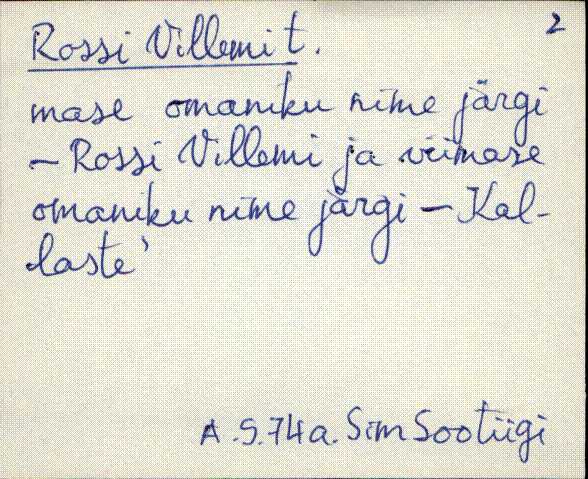 2
Rossi Villemi t.
mase omaniku nime järgi
– Rossi Villemi ja viimase
omaniku nime järgi – Kal-
laste'
A. S. 74a. Sim Sootiigi